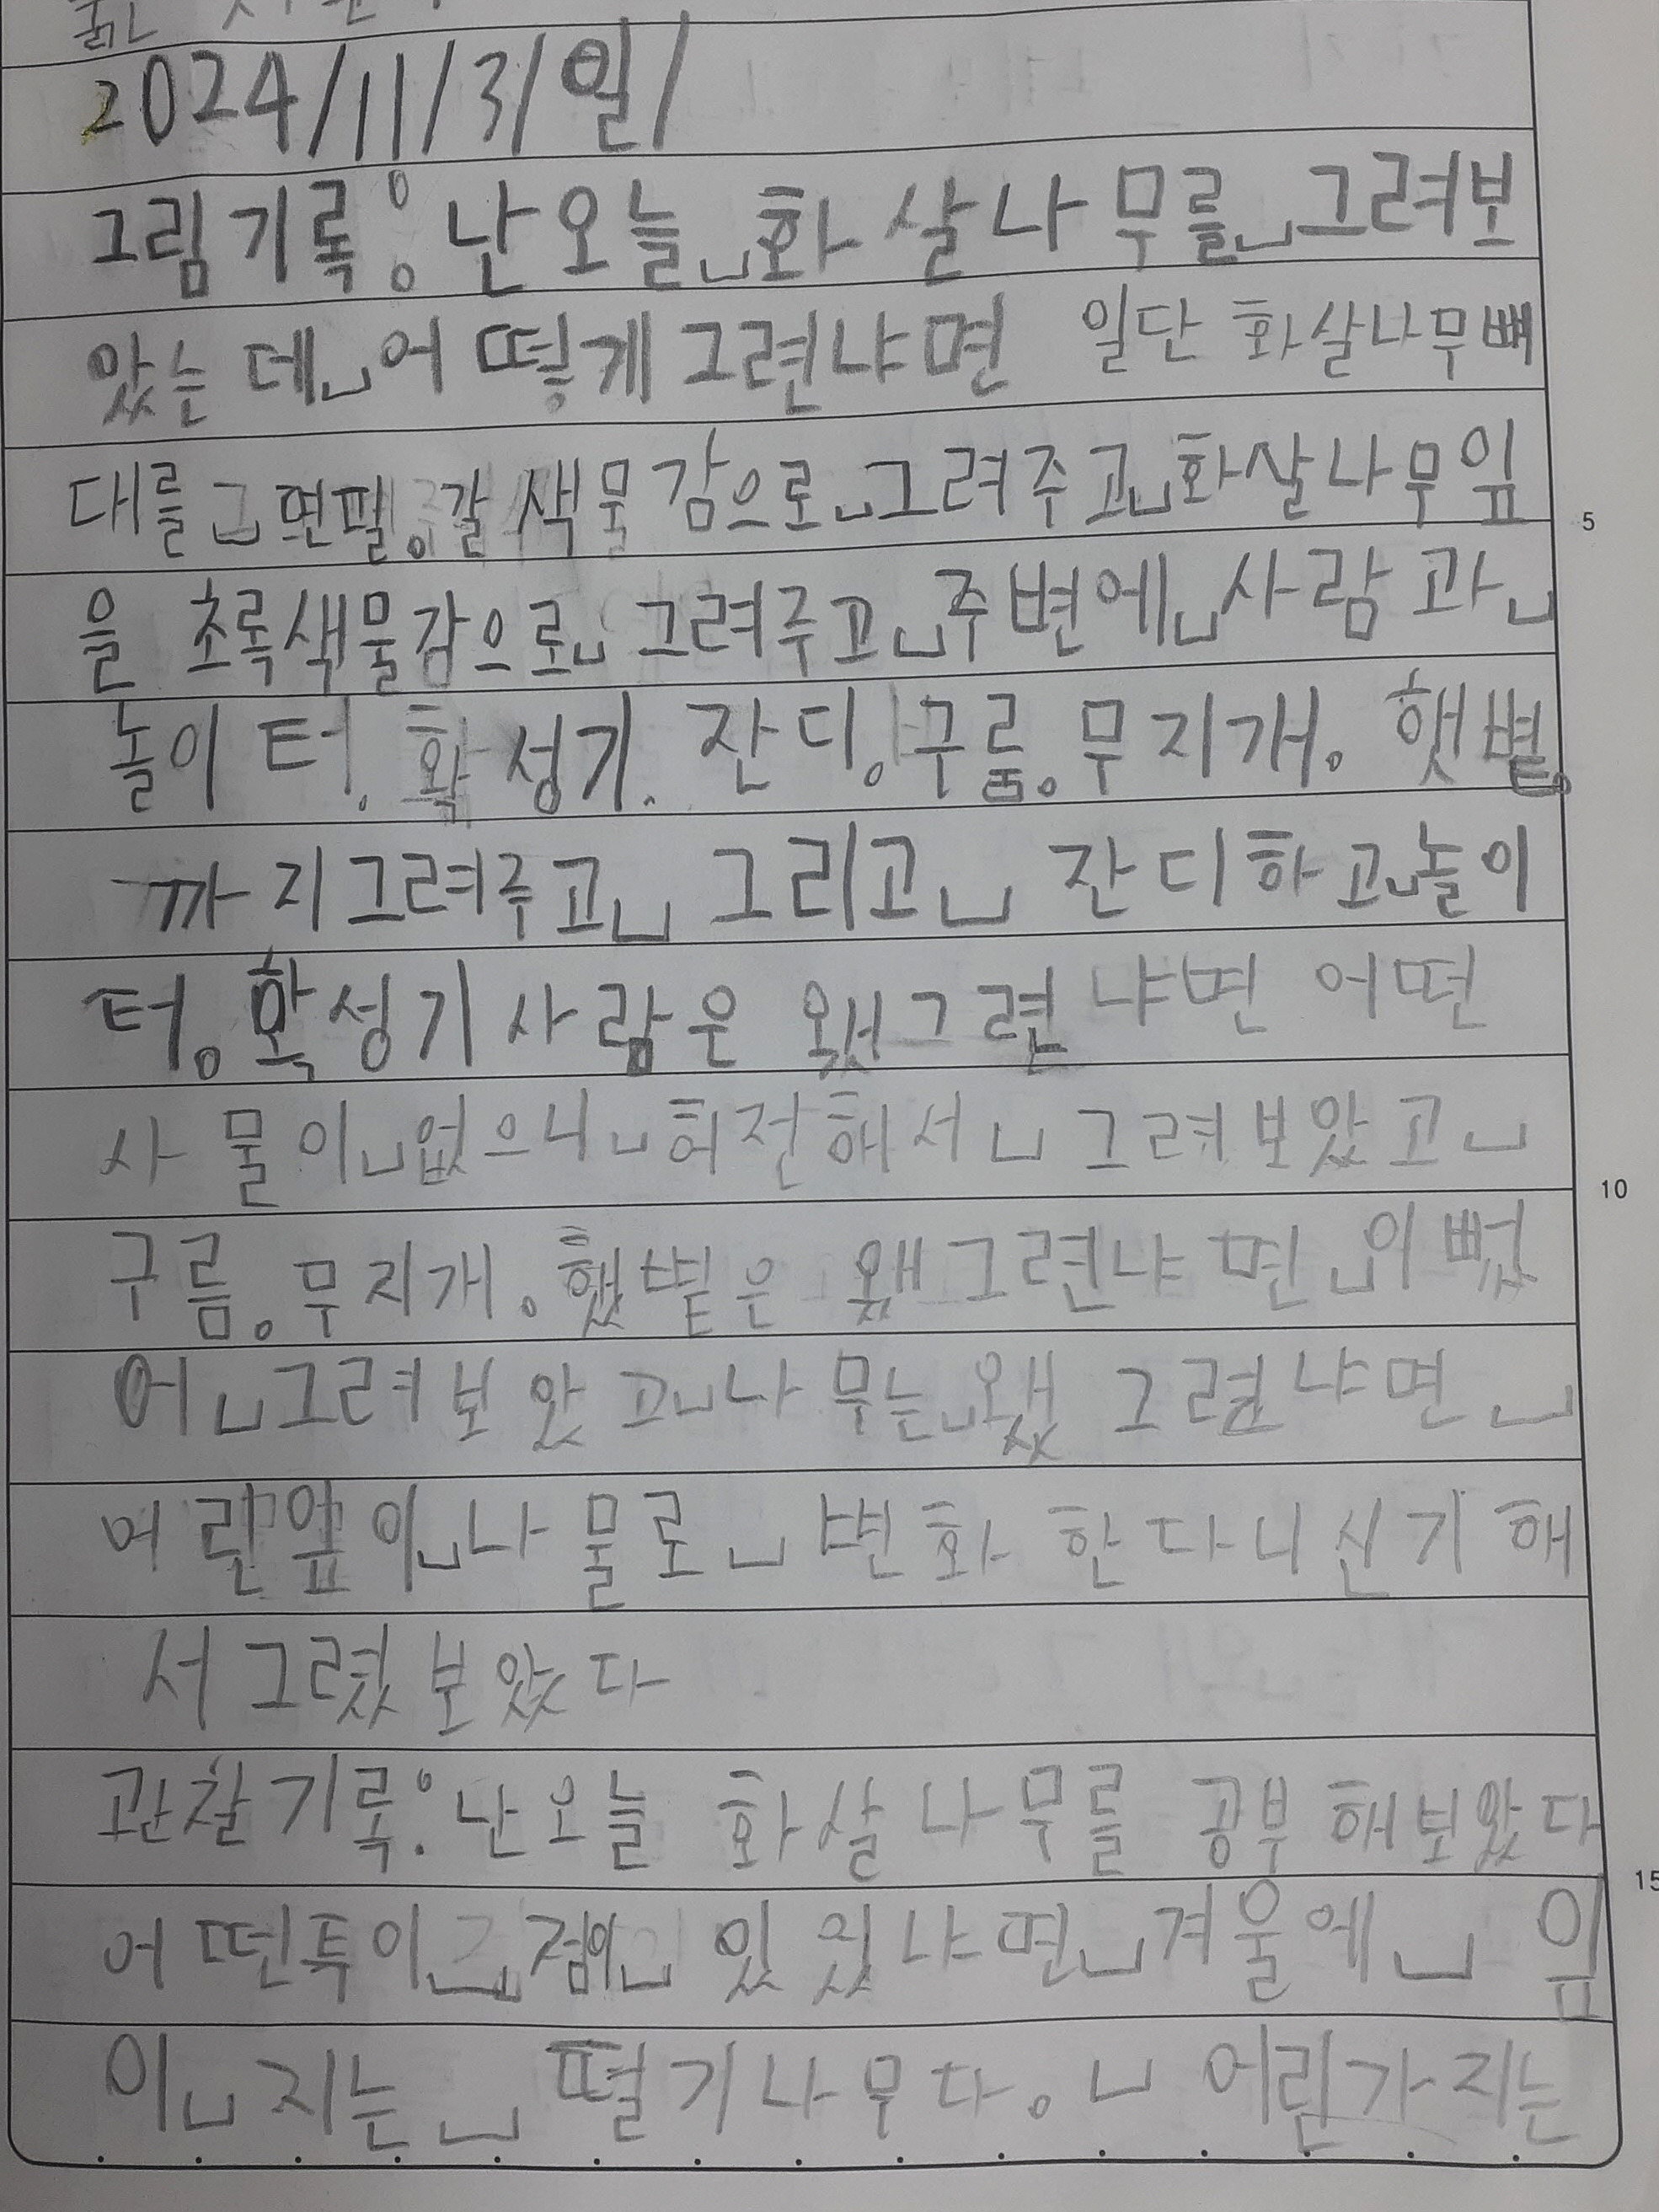 2024/11/3/일/
그림기록: 난오늘 화살나무를 그려보
았는데 어떻게그련냐면 일단 화살나무뼈
대를 면필.갈색물감으로 그려주고 화살나무잎
을 초록색물감으로 그려주고 주변에 사람과
놀이터. 확성기. 잔디.구름.무지개. 햇볕.
까지그려주고 그리고 잔디하고 놀이
터. 확성기사람은 왰그련냐면 어떤
사물이 없으니 허전해서 그려보았고
구름.무지개.했볕은 왰그련냐면 이뻤
어 그려보았고 나무는 왰그련냐면
어린잎이 나물로 변화한다니신기해
서그렸보았다
관찰기록: 난오늘 화살나무를 공부해보았다
어떤투이 점이 있있냐면 겨울에 잎
이 지는 떨기나무다. 어린가지는
5
10
15